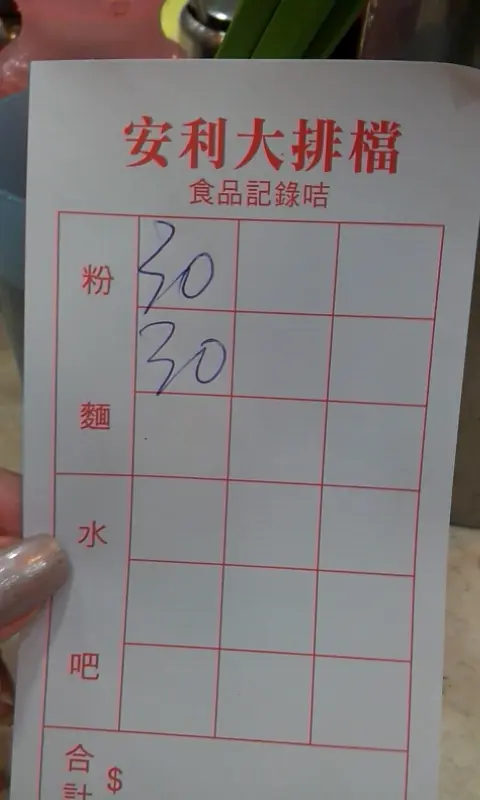 安利大排檔
食品記錄咭
粉麵
30
30
水吧
合計 $